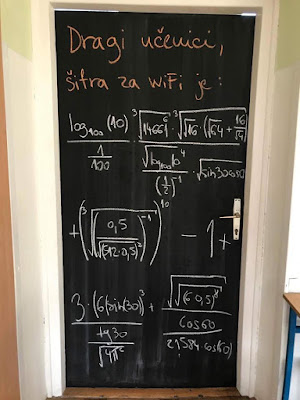 Dragi učenici,
šifra za WiFi je:
log₁₀₀(10) / (1/100) · ³√(√(1466⁶)) · ³√(√16 · (√64 + 16/√4))
√(log₁₀10⁴) / (1/2)⁻¹ · √(sin30cos60)
+ (³√(√(0,5 / √((512·0,5)³)))⁻¹)¹⁰ − 1 +
3·(6(sin(30))³ + √(√((6·0,5)⁸))
tg30 cos60
√(4π²) 21584·cos60)